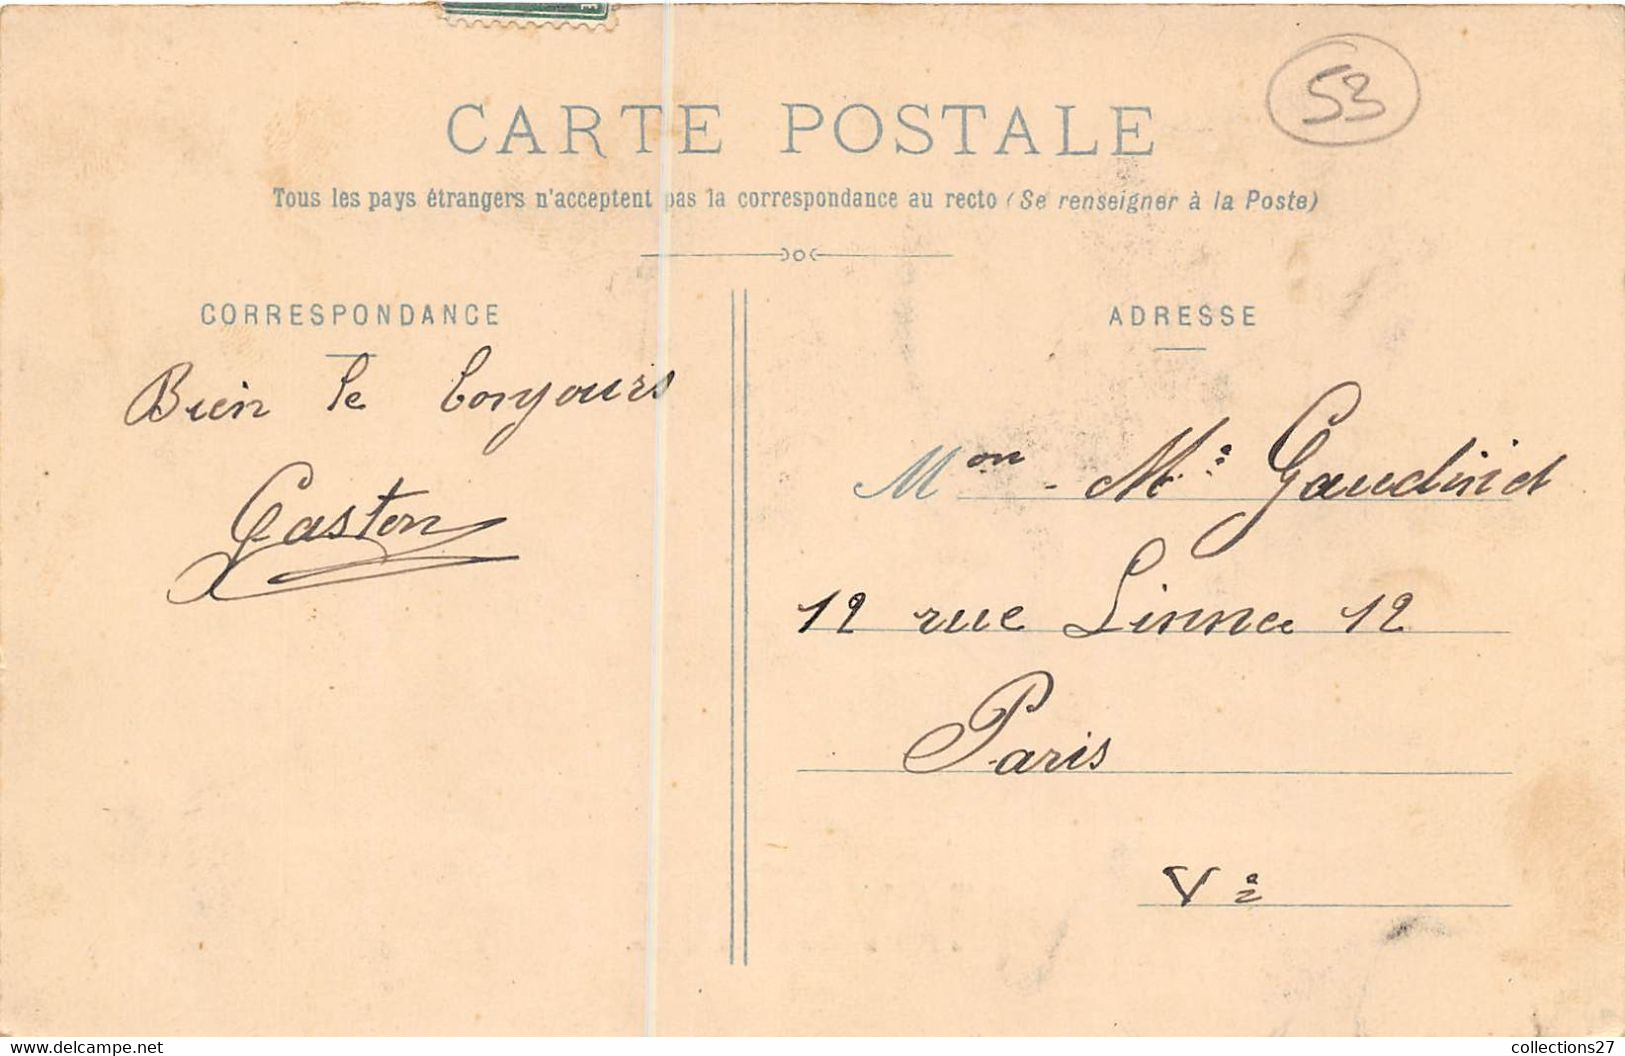 53
CARTE POSTALE
Tous les pays étrangers n'acceptent pas la correspondance au recto (Se renseigner à la Poste)
CORRESPONDANCE
Bien le bonjours
Gaston
ADRESSE
Mon - Me Gaudinet
12 rue Linne 12
Paris
Ve
www.delcampe.net
collections27